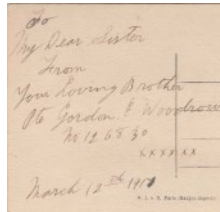 To
My Dear Sister
From
Your Loving Brother
Pte Gordon E Woodrow
No 126830
xxxxxx
March 12th 191
Paris